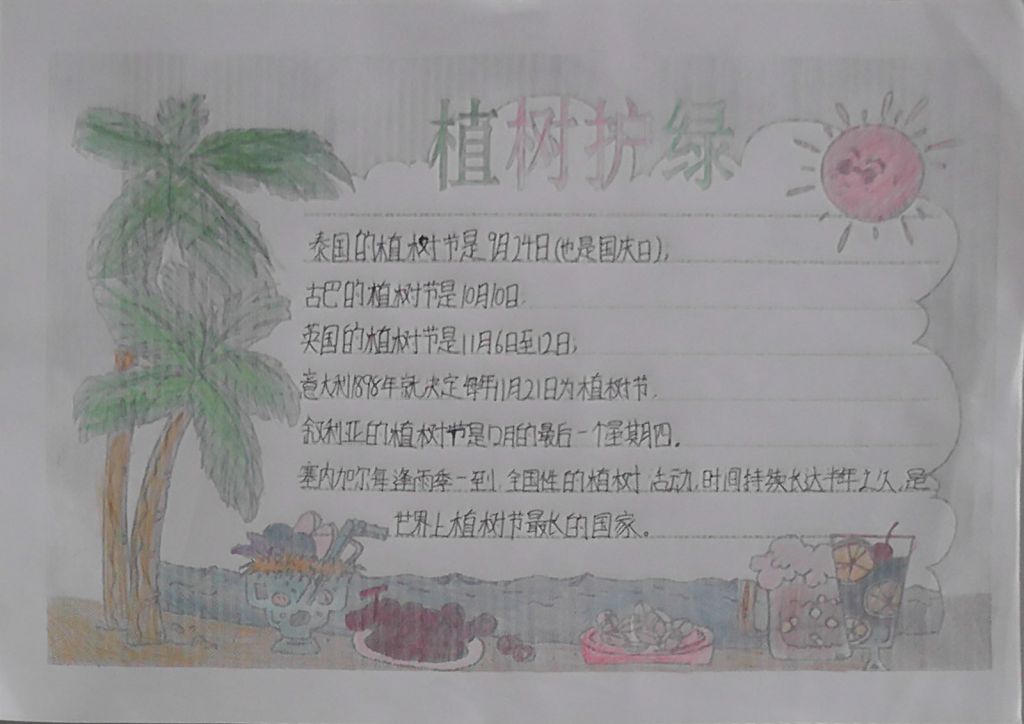 植树护绿
泰国的植树节是9月24日(也是国庆日);
古巴的植树节是10月10日.
英国的植树节是11月6日至12日;
意大利1898年就决定每年11月21日为植树节.
叙利亚的植树节是12月的最后一个星期四。
塞内加尔每逢雨季一到,全国性的植树活动,时间持续长达半年之久,是
世界上植树节最长的国家。